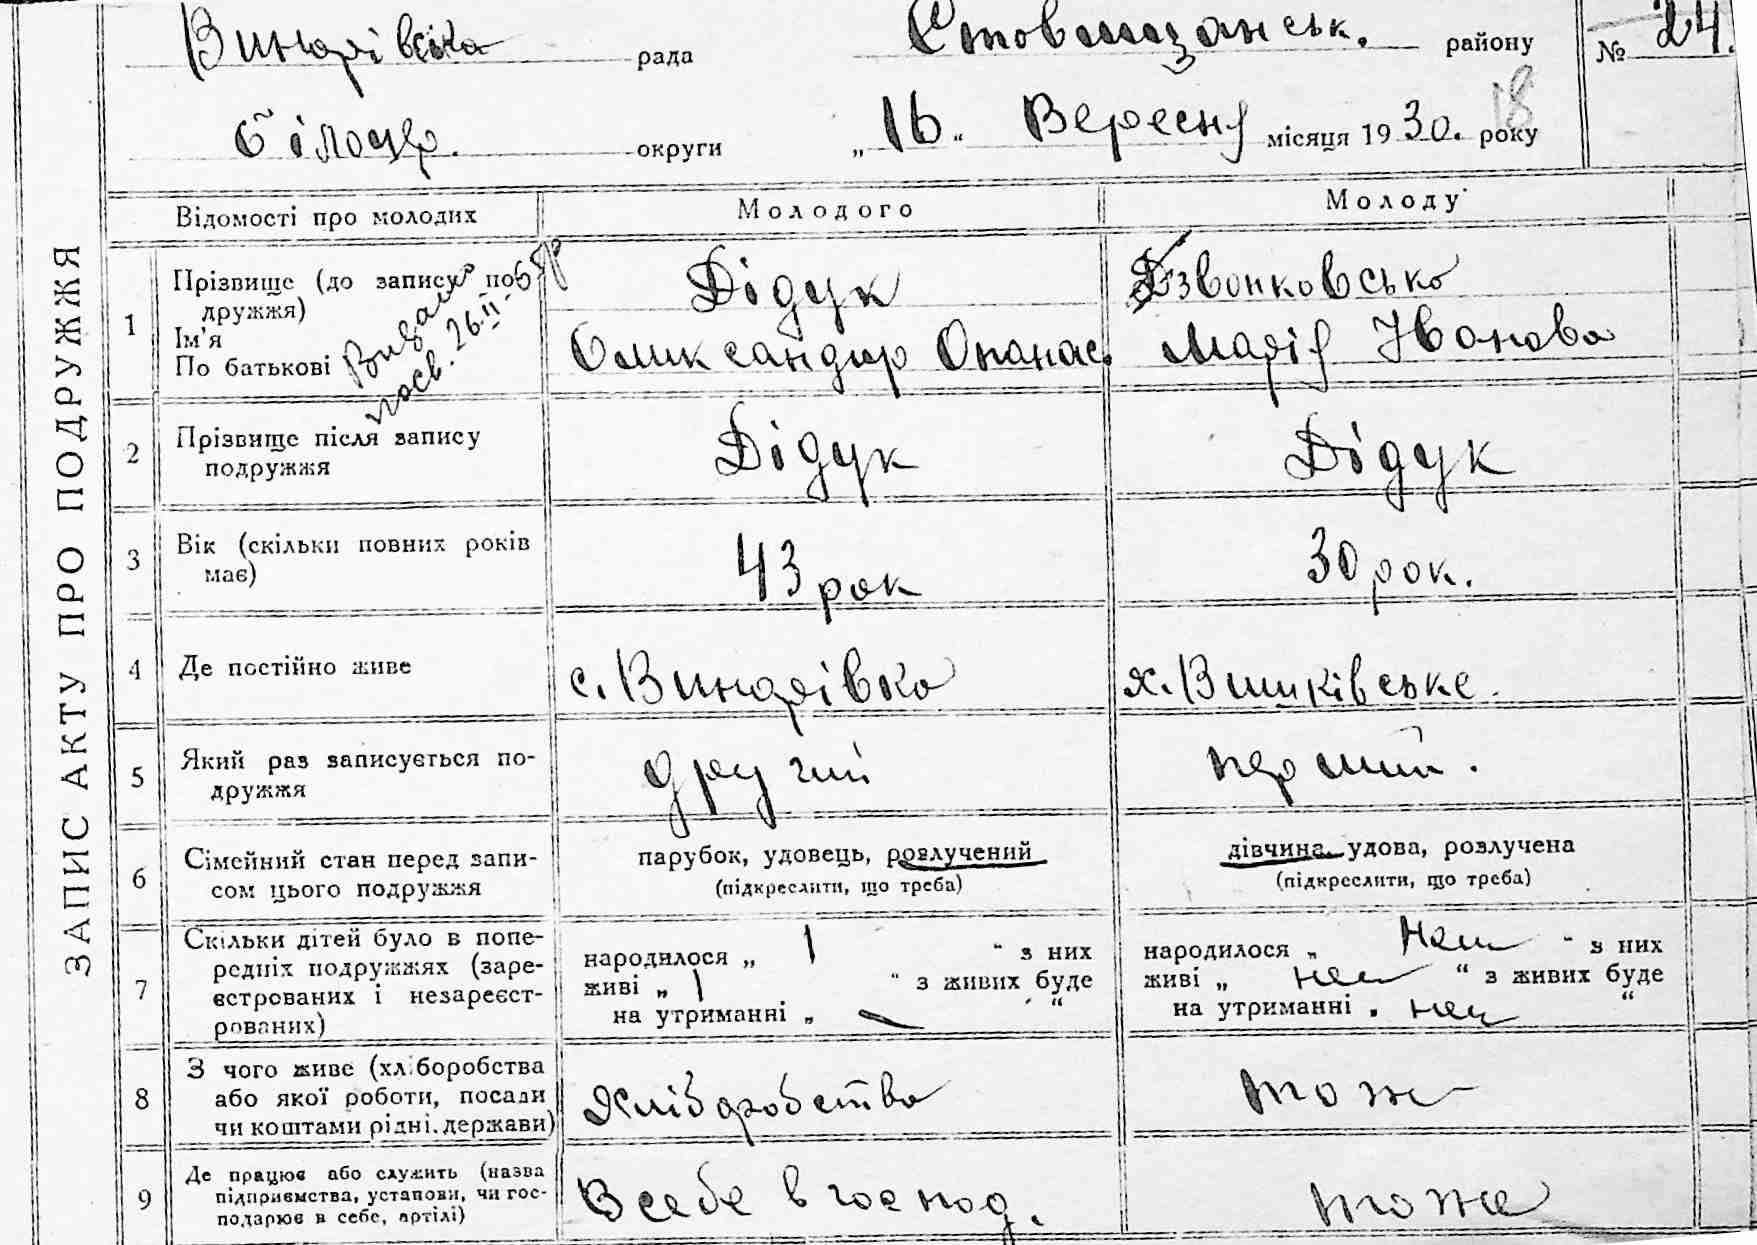 Винарівська рада Ставищанськ. району № 24.
18
Білоцер. округи „16“ Вересня місяця 1930. року
ЗАПИС АКТУ ПРО ПОДРУЖЖЯ
Відомості про молодих Молодого Молоду
1 Прізвище (до запису по-
дружжя)
Ім'я
По батькові
посв. 26.II-
Дідук Дзвонковсько
Олександир Опанас. Марія Иванова
2 Прізвище після запису
подружжя
Дідук Дідук
3 Вік (скільки повних років
має)
43 рок 30 рок.
4 Де постійно живе с. Винарівка х. Вишківське.
5 Який раз записується по-
дружжя
другий перший.
6 Сімейний стан перед запи-
сом цього подружжя
парубок, удовець, розлучений дівчина, удова, розлучена
(підкреслити, що треба) (підкреслити, що треба)
7 Скільки дітей було в попе-
редніх подружжях (заре-
єстрованих і незареєст-
рованих)
народилося „ 1 “ з них народилося „ нем “ з них
живі „ 1 “ з живих буде живі „ нем “ з живих буде
на утриманні „ — “ на утриманні „ нем “
8 З чого живе (хліборобства
або якої роботи, посади
чи коштами рідні, держави)
Хліборобства тож
9 Де працює або служить (назва
підприємства, установи, чи гос-
подарює в себе, артілі)
В себе в господ. тоже